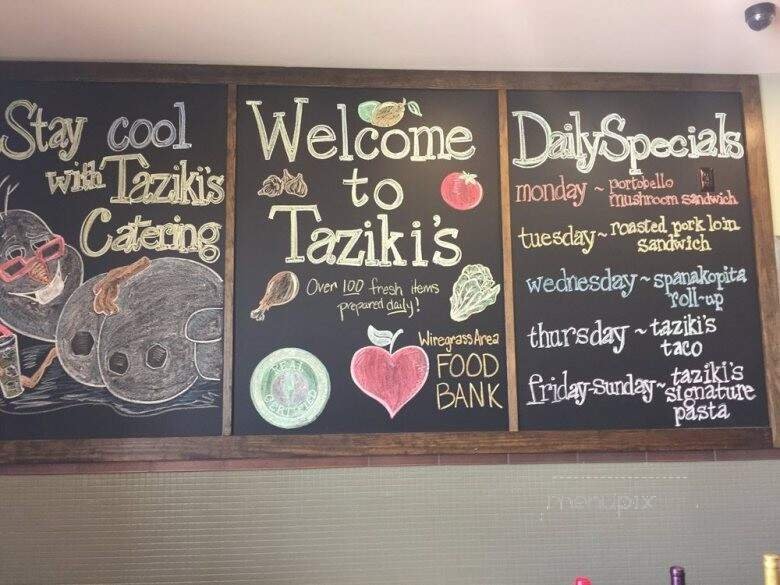 Stay cool
with Taziki's
Catering
Welcome
to
Taziki's
Over 100 fresh items
prepared daily!
REAL
CERTIFIED
Wiregrass Area
FOOD
BANK
Daily Specials
monday ~ portobello
mushroom sandwich
tuesday ~ roasted pork loin
sandwich
wednesday ~ spanakopita
roll-up
thursday ~ taziki's
taco
friday-sunday ~ taziki's
signature
pasta
menupix